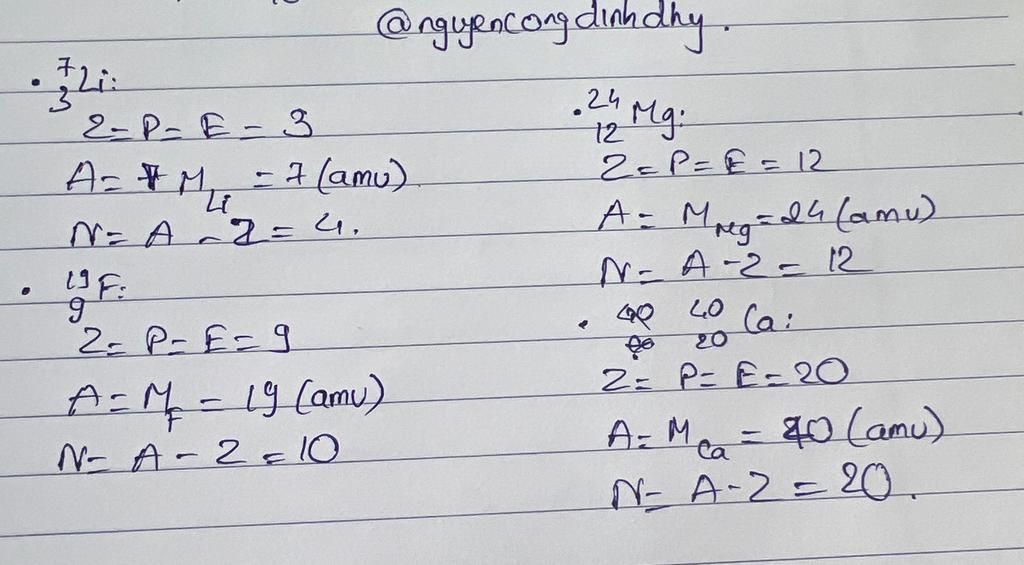 @nguyencongdinhdhy.
• ⁷₃Li:
Z = P = E = 3
A = M_Li = 7 (amu).
N = A - Z = 4.
• ¹⁹₉F:
Z = P = E = 9
A = M_F = 19 (amu)
N = A - Z = 10
• ²⁴₁₂Mg:
Z = P = E = 12
A = M_Mg = 24 (amu)
N = A - Z = 12
• ⁴⁰₂₀Ca:
Z = P = E = 20
A = M_Ca = 40 (amu)
N = A - Z = 20.